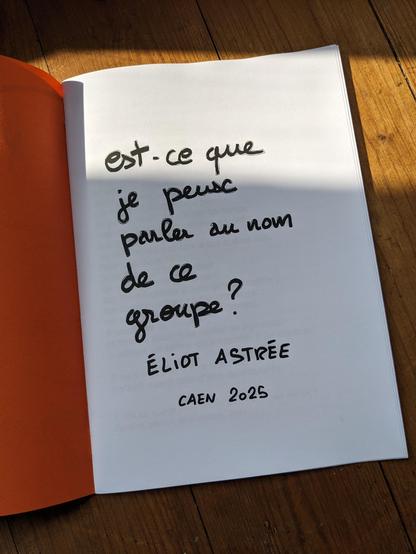 est-ce que
je peux
parler au nom
de ce
groupe?
ÉLIOT ASTRÉE
CAEN 2025